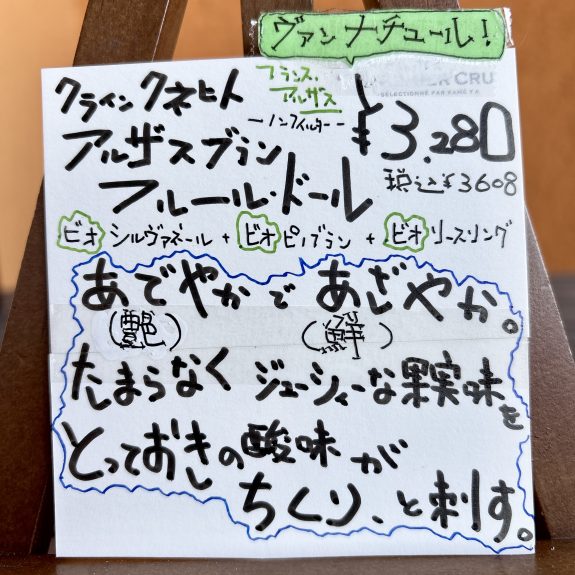 ヴァン ナチュール!
PREMIER CRU
SELECTIONNÉ PAR
クライン クネヒト
フランス、
アルザス
ーノンフィルターー
アルザス ブラン
¥3.280
税込¥3608
フルール・ドール
ビオ シルヴァネール + ビオ ピノブラン + ビオ リースリング
あでやかで あざやか。
(艶) (鮮)
たまらなく ジューシィーな果実味を
とっておきの酸味が
ちくり、と刺す。